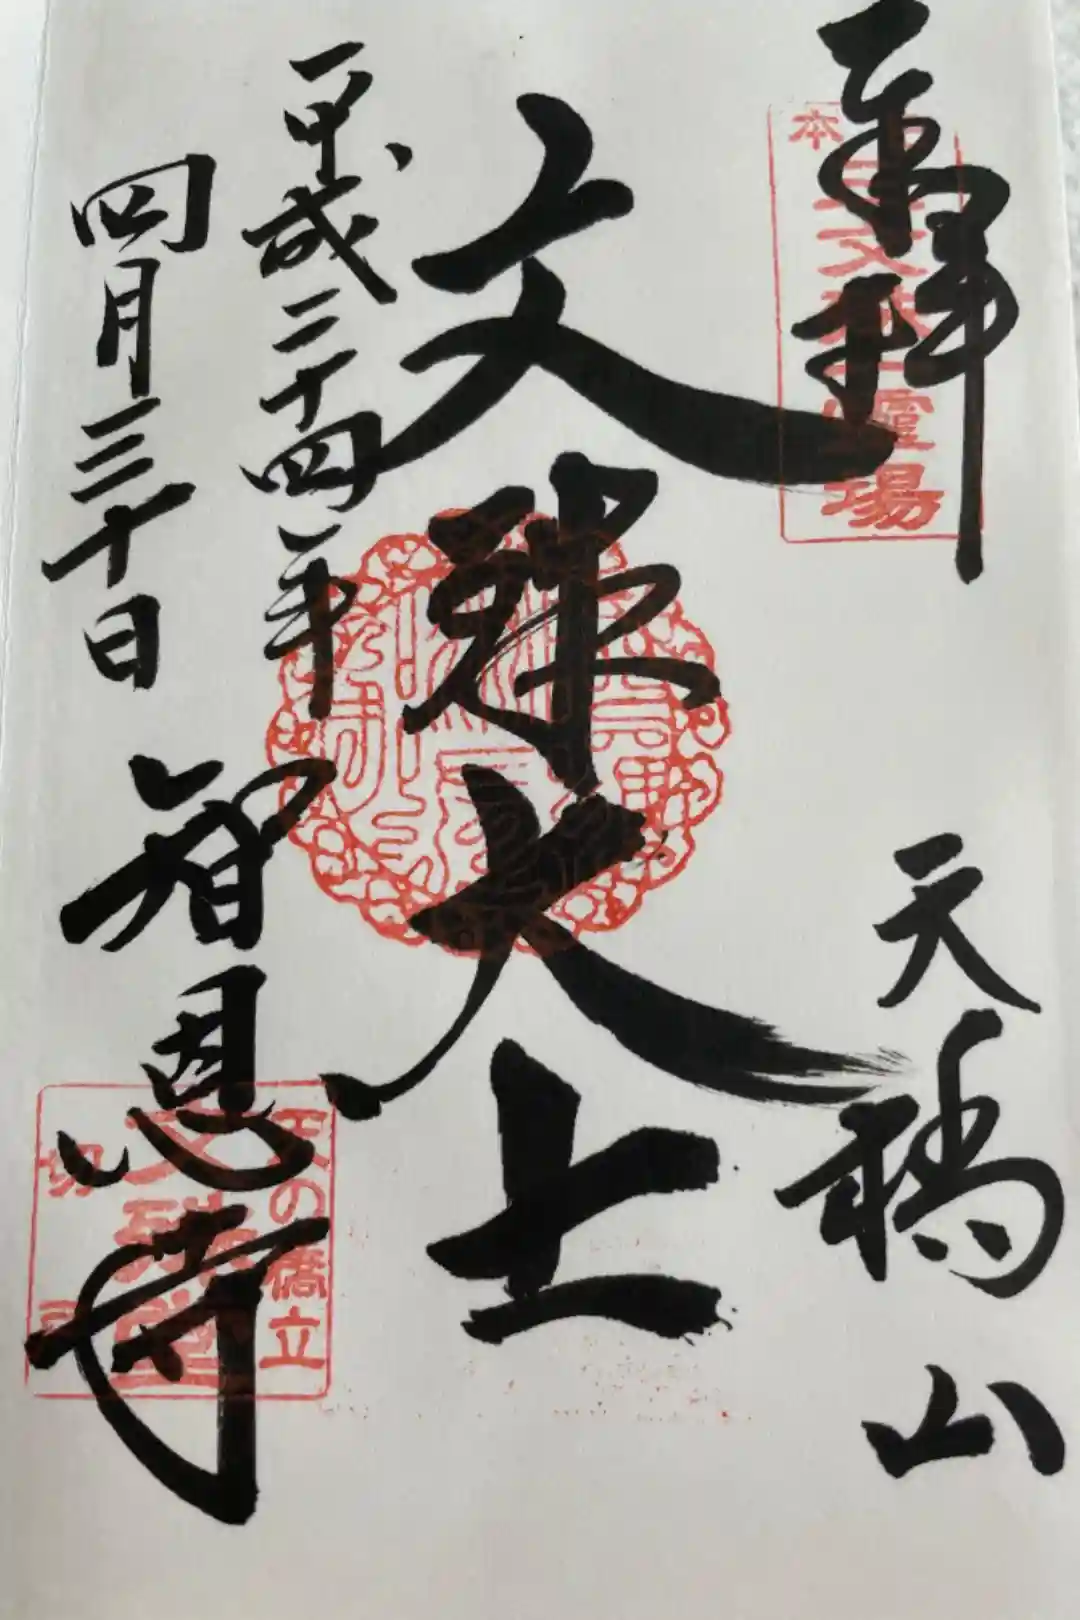 奉拝
日本三文殊霊場
天橋山
文殊大士
平成二十四年
四月三十日
智恩寺
天の橋立
文殊堂
切戸